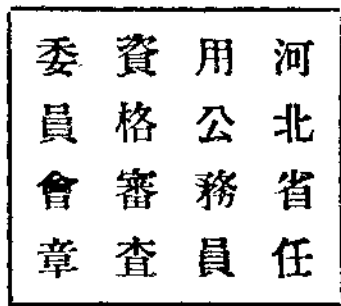 河北省任
用公務員
資格審查
委員會章